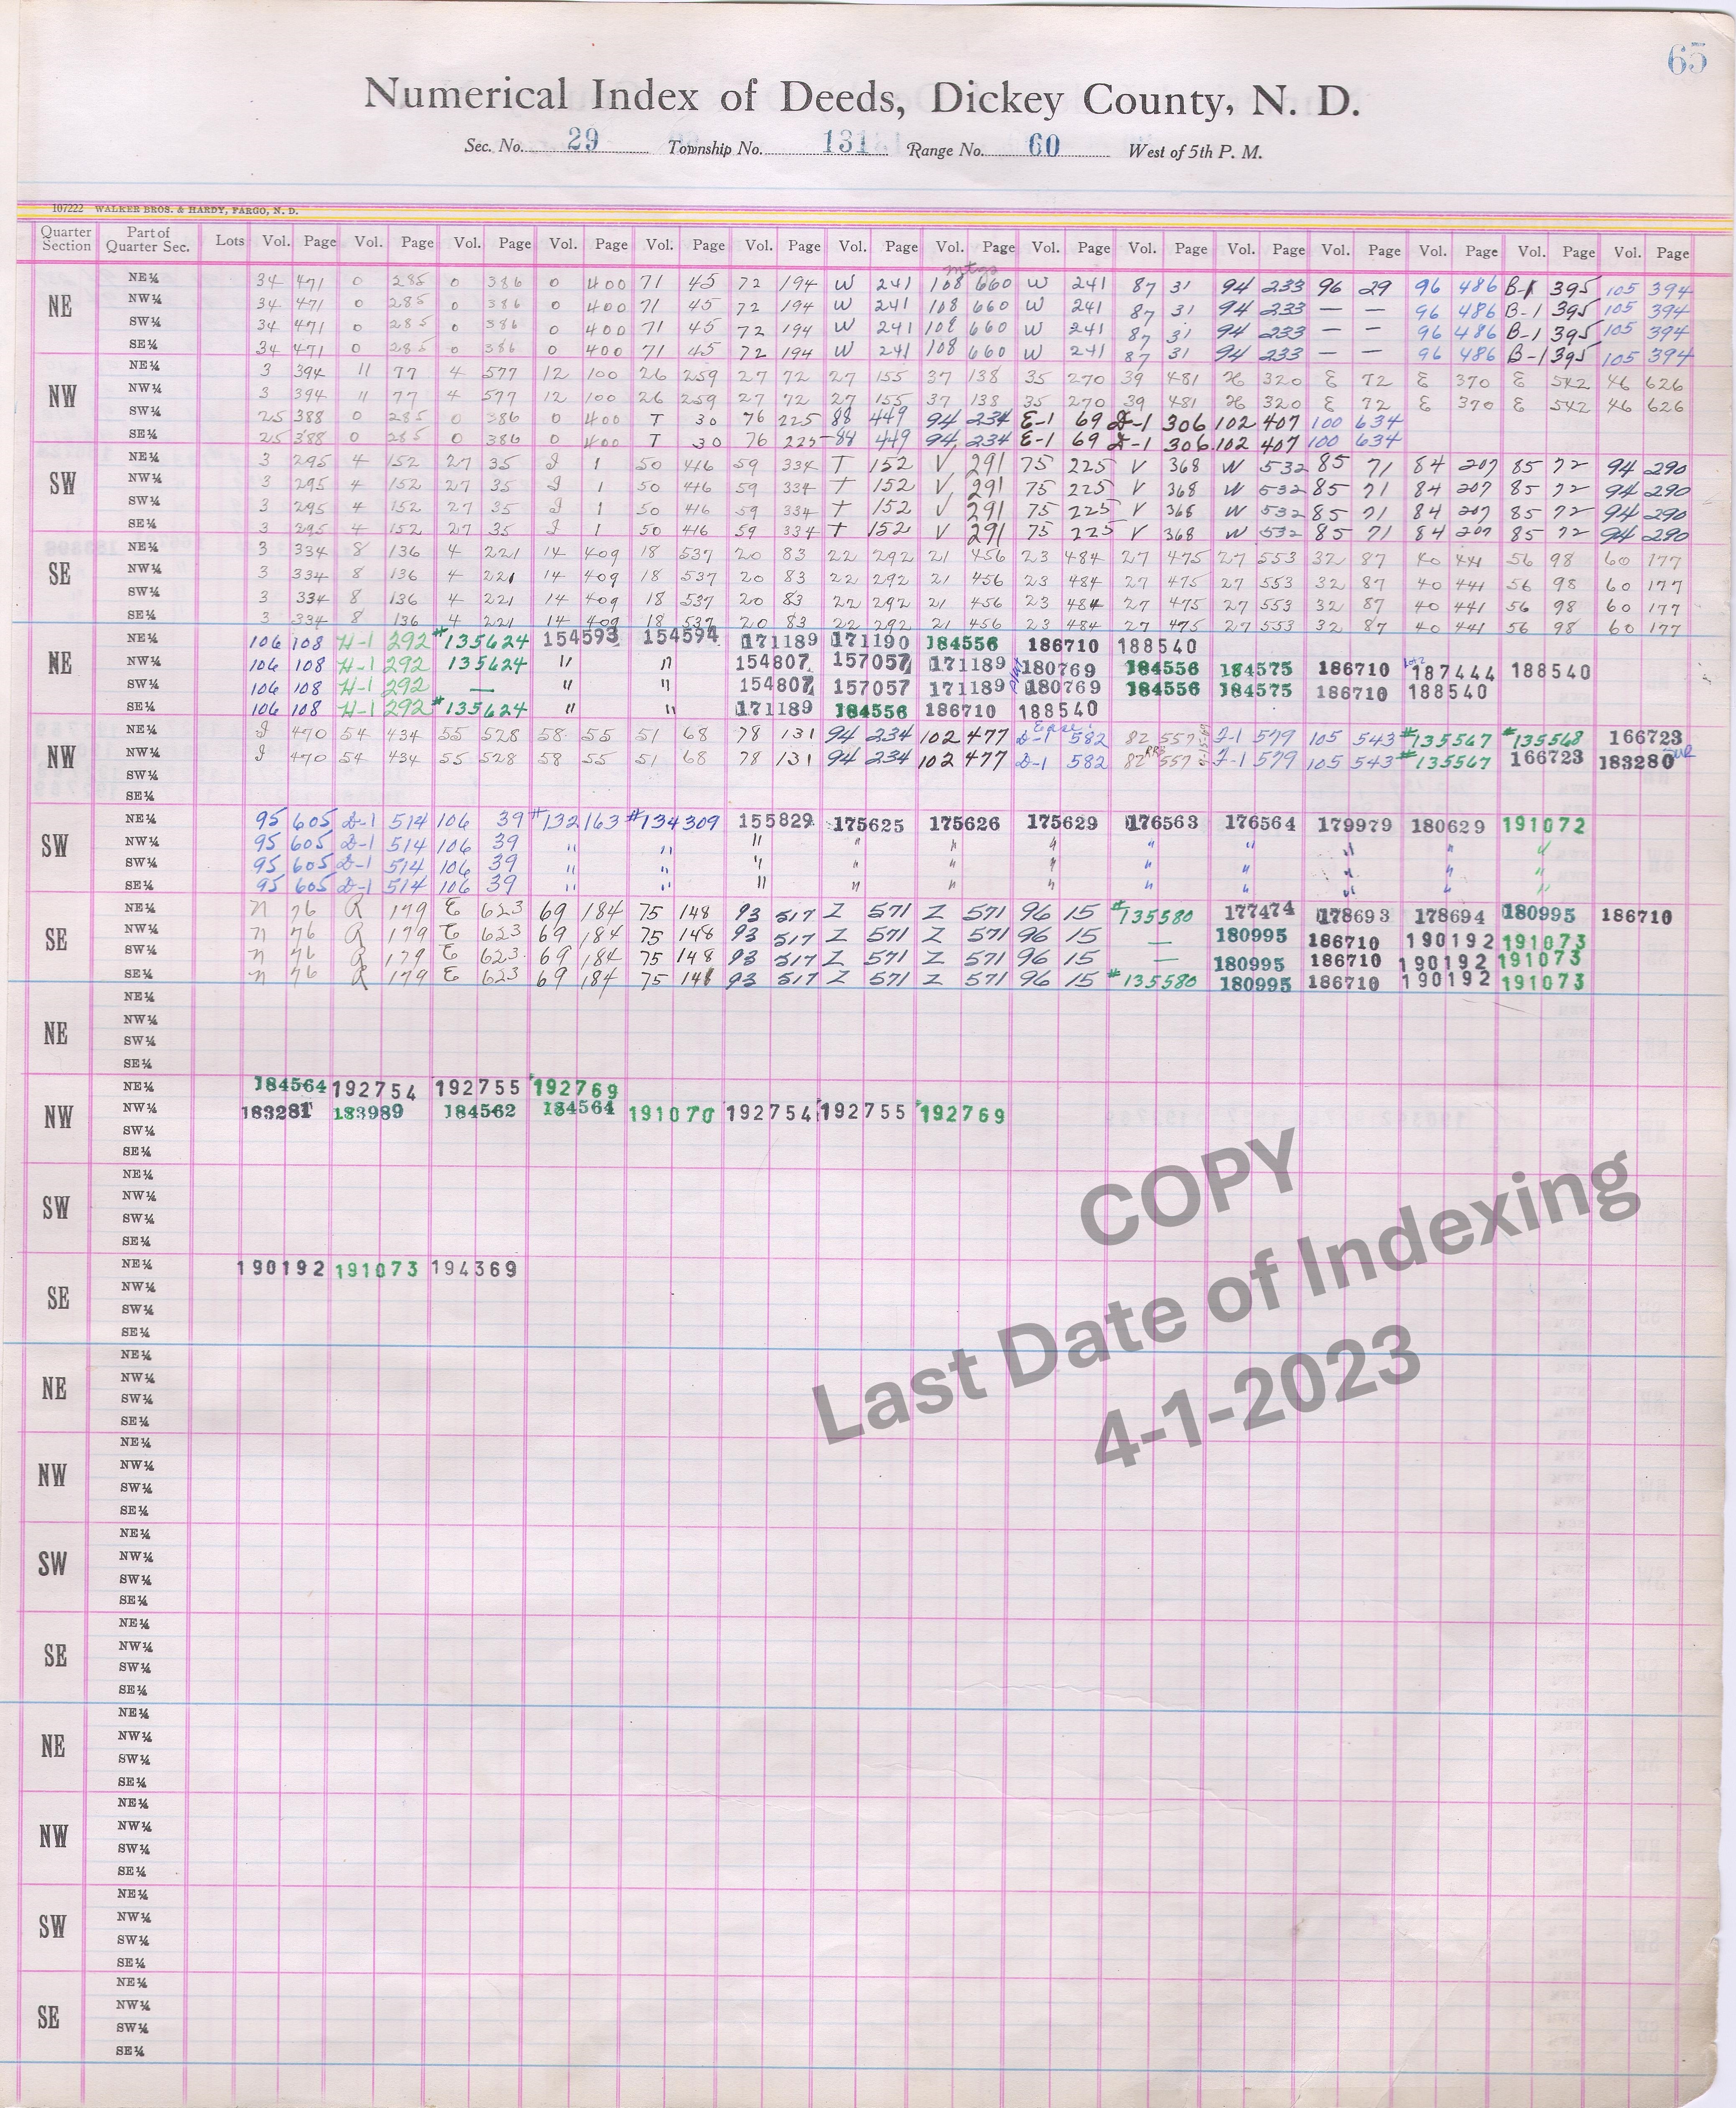 65
Numerical Index of Deeds, Dickey County, N. D.
Sec. No. 29 Township No. 131 Range No. 60 West of 5th P. M.
107222 WALKER BROS. & HARDY, FARGO, N. D.
Quarter Section Part of Quarter Sec. Lots Vol. Page Vol. Page Vol. Page Vol. Page Vol. Page Vol. Page Vol. Page Vol. Page Vol. Page Vol. Page Vol. Page Vol. Page Vol. Page Vol. Page Vol. Page
mtgs
NE NE¼ 34 471 O 285 O 386 O 400 71 45 72 194 W 241 108 660 W 241 87 31 94 233 96 29 96 486 B-1 395 105 394
NW¼ 34 471 O 285 O 386 O 400 71 45 72 194 W 241 108 660 W 241 87 31 94 233 — — 96 486 B-1 395 105 394
SW¼ 34 471 O 285 O 386 O 400 71 45 72 194 W 241 108 660 W 241 87 31 94 233 — — 96 486 B-1 395 105 394
SE¼ 34 471 O 285 O 386 O 400 71 45 72 194 W 241 108 660 W 241 87 31 94 233 — — 96 486 B-1 395 105 394
NW NE¼ 3 394 11 77 4 577 12 100 26 259 27 72 27 155 37 138 35 270 39 481 H 320 E 72 E 370 E 542 46 626
NW¼ 3 394 11 77 4 577 12 100 26 259 27 72 27 155 37 138 35 270 39 481 H 320 E 72 E 370 E 542 46 626
SW¼ 25 388 O 285 O 386 O 400 T 30 76 225 88 449 94 234 E-1 69 D-1 306 102 407 100 634
SE¼ 25 388 O 285 O 386 O 400 T 30 76 225 88 449 94 234 E-1 69 D-1 306 102 407 100 634
SW NE¼ 3 295 4 152 27 35 J 1 50 416 59 334 T 152 V 291 75 225 V 368 W 532 85 71 84 207 85 72 94 290
NW¼ 3 295 4 152 27 35 J 1 50 416 59 334 T 152 V 291 75 225 V 368 W 532 85 71 84 207 85 72 94 290
SW¼ 3 295 4 152 27 35 J 1 50 416 59 334 T 152 V 291 75 225 V 368 W 532 85 71 84 207 85 72 94 290
SE¼ 3 295 4 152 27 35 J 1 50 416 59 334 T 152 V 291 75 225 V 368 W 532 85 71 84 207 85 72 94 290
SE NE¼ 3 334 8 136 4 221 14 409 18 537 20 83 22 292 21 456 23 484 27 475 27 553 32 87 40 441 56 98 60 177
NW¼ 3 334 8 136 4 221 14 409 18 537 20 83 22 292 21 456 23 484 27 475 27 553 32 87 40 441 56 98 60 177
SW¼ 3 334 8 136 4 221 14 409 18 537 20 83 22 292 21 456 23 484 27 475 27 553 32 87 40 441 56 98 60 177
SE¼ 3 334 8 136 4 221 14 409 18 537 20 83 22 292 21 456 23 484 27 475 27 553 32 87 40 441 56 98 60 177
NE NE¼ 106 108 H-1 292 #135624 154593 154594 171189 171190 184556 186710 188540
NW¼ 106 108 H-1 292 135624 " " 154807 157057 171189 180769 184556 184575 186710 187444 188540
SW¼ 106 108 H-1 292 — " " 154807 157057 171189 180769 184556 184575 186710 188540
SE¼ 106 108 H-1 292 #135624 " " 171189 184556 186710 188540
NW NE¼ J 470 54 434 55 528 58 55 51 68 78 131 94 234 102 477 D-1 582 82 557 J-1 579 105 543 #135567 #135568 166723
NW¼ J 470 54 434 55 528 58 55 51 68 78 131 94 234 102 477 D-1 582 82 557 J-1 579 105 543 #135567 166723 183280
SW¼
SE¼
SW NE¼ 95 605 D-1 514 106 39 #132163 #134309 155829 175625 175626 175629 176563 176564 179979 180629 191072
NW¼ 95 605 D-1 514 106 39 " " " " " " " " " " "
SW¼ 95 605 D-1 514 106 39 " " " " " " " " " " "
SE¼ 95 605 D-1 514 106 39 " " " " " " " " " " "
SE NE¼ N 76 R 179 E 623 69 184 75 148 93 517 Z 571 Z 571 96 15 #135580 177474 178693 178694 180995 186710
NW¼ N 76 R 179 E 623 69 184 75 148 93 517 Z 571 Z 571 96 15 — 180995 186710 190192 191073
SW¼ N 76 R 179 E 623 69 184 75 148 93 517 Z 571 Z 571 96 15 — 180995 186710 190192 191073
SE¼ N 76 R 179 E 623 69 184 75 148 93 517 Z 571 Z 571 96 15 #135580 180995 186710 190192 191073
NE NE¼
NW¼
SW¼
SE¼
NW NE¼ 184564 192754 192755 192769
NW¼ 183281 183989 184562 184564 191070 192754 192755 192769
SW¼
SE¼
SW NE¼
NW¼
SW¼
SE¼
SE NE¼ 190192 191073 194369
NW¼
SW¼
SE¼
NE NE¼
NW¼
SW¼
SE¼
NW NE¼
NW¼
SW¼
SE¼
SW NE¼
NW¼
SW¼
SE¼
SE NE¼
NW¼
SW¼
SE¼
NE NE¼
NW¼
SW¼
SE¼
NW NE¼
NW¼
SW¼
SE¼
SW NE¼
NW¼
SW¼
SE¼
SE NE¼
NW¼
SW¼
SE¼
COPY
Last Date of Indexing
4-1-2023